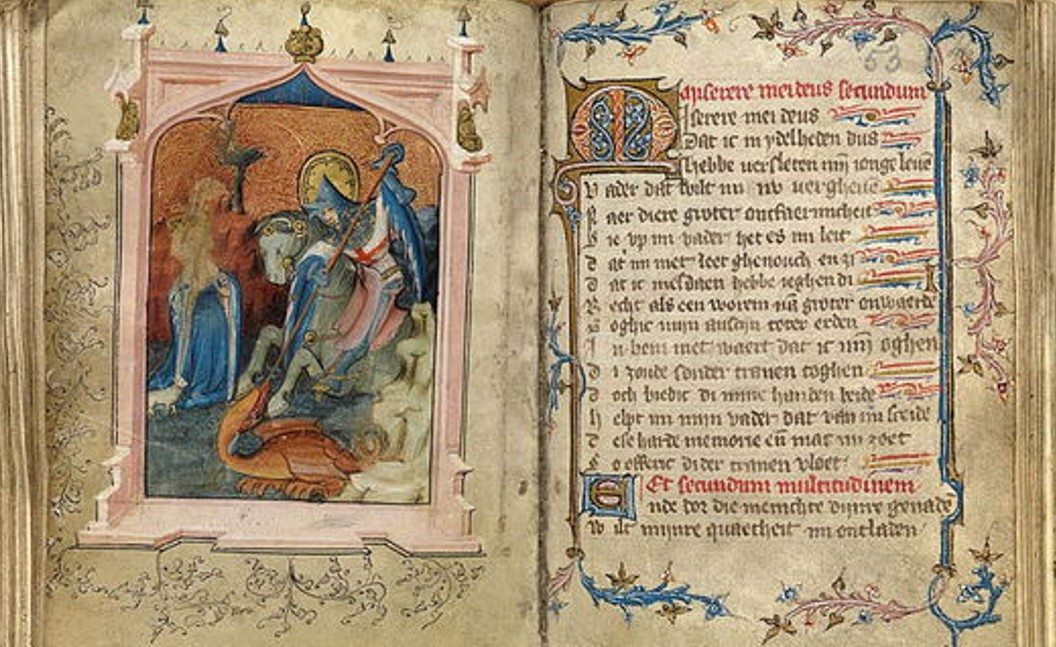 53
Miserere mei deus secundum
Miserere mei deus
Dat ic in ydelheden dus
hebbe versleten mijn ionge leve
Vader dat wilt mi nu vergheven
diere groter ontfaermicheit
ic up mi vader het es mi leit
dat mi met leet ghenouch en zi
dat ic mesdaen hebbe ieghen di
Recht als een worem groter onwaerde
oghic mijn anschijn ter erden
in ben niet waert dat ic mijn oghen
di zonde sonder tranen toghen
doch biedic di mine handen beide
helpt mi mijn vader dat van mi sceide
dese harde memorie en mac mi zoet
so offeric di der tranen vloet
Et secundum multitudinem
Ende dor die menichte dijnre genade
wilt mijnre quaetheit mi ontladen